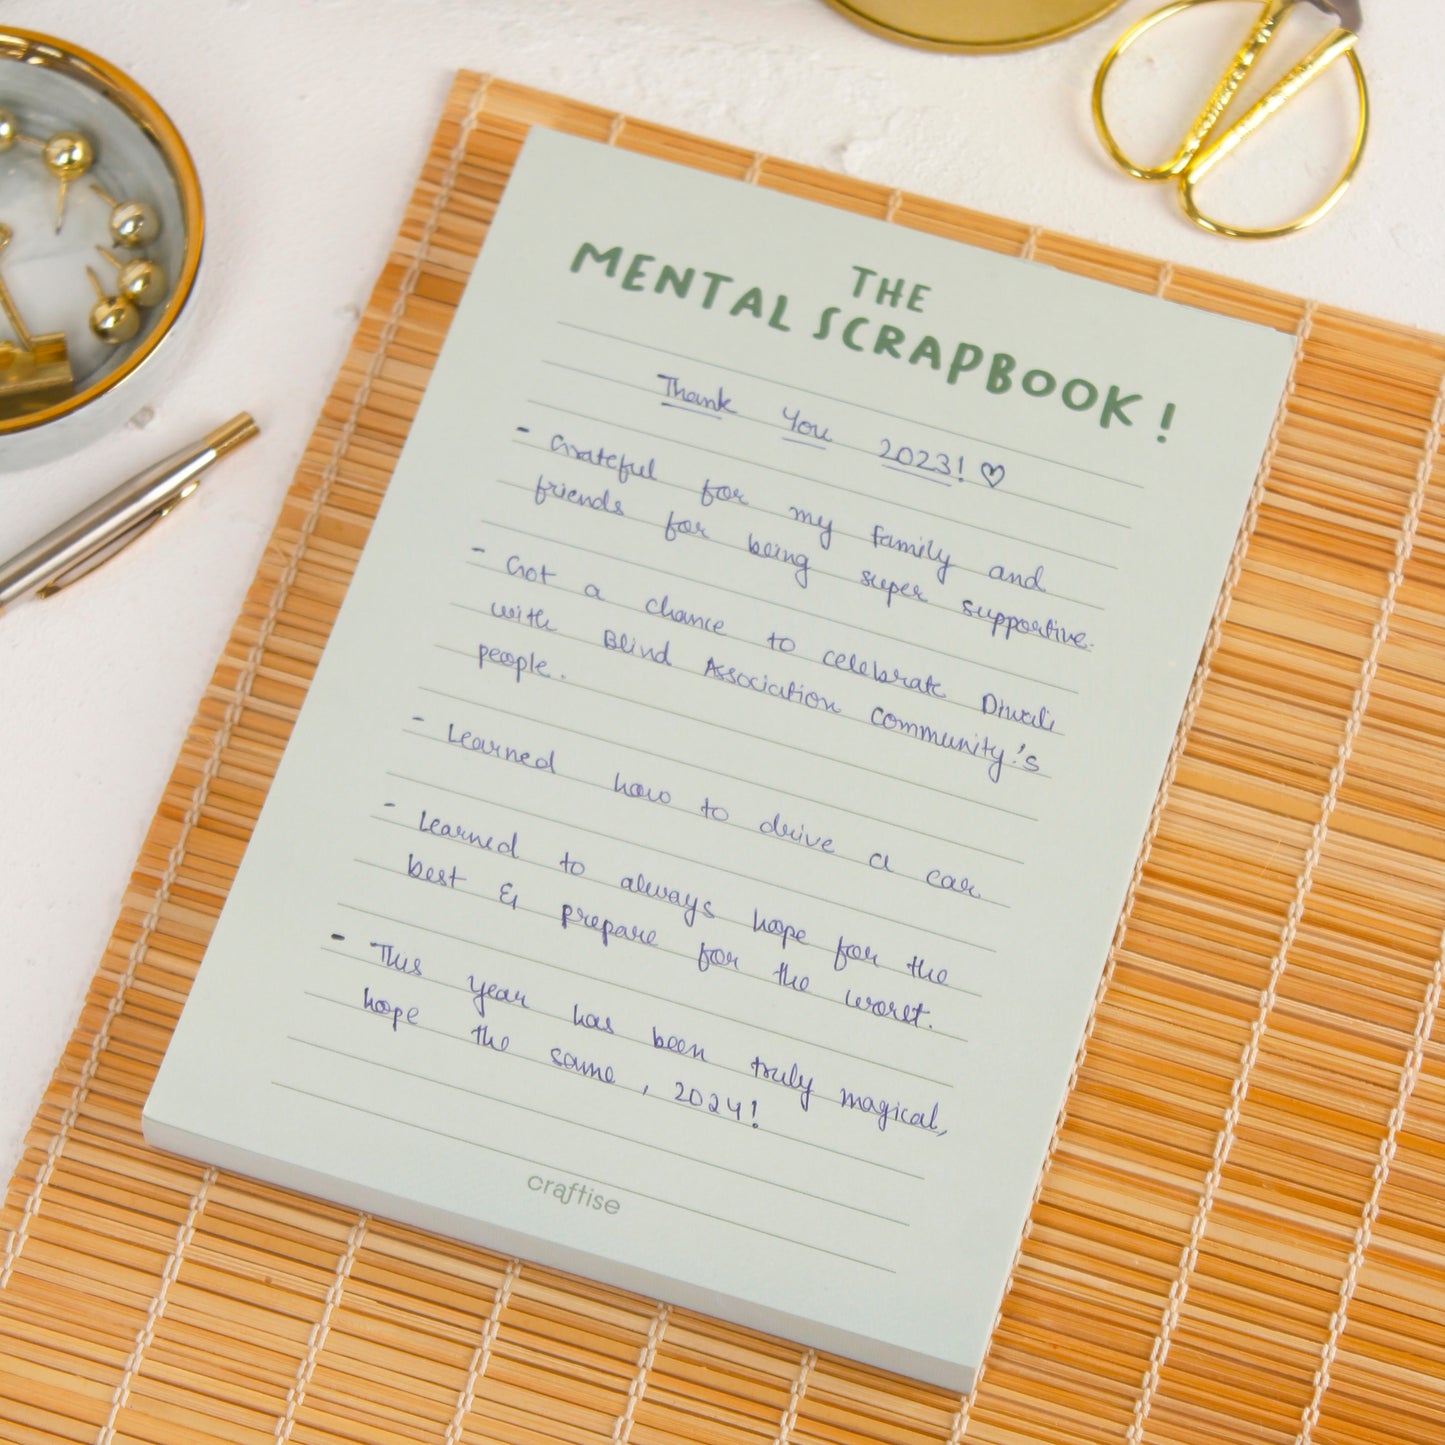 THE
MENTAL SCRAPBOOK!
Thank You 2023! ♡
- Grateful for my family and
friends for being super supportive.
- Got a chance to celebrate Diwali
with Blind Association Community's
people.
- Learned how to drive a car
- Learned to always hope for the
best & prepare for the worst.
- This year has been truly magical,
hope the same, 2024!
craftise